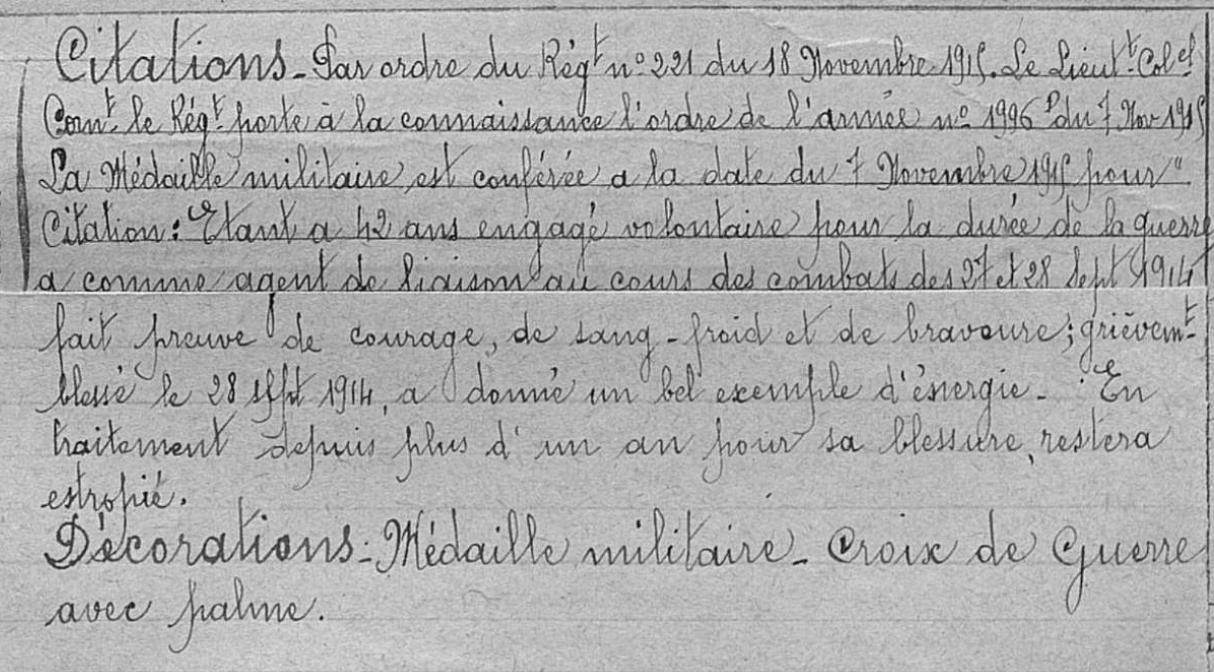 Citations - Par ordre du Régt no 221 du 18 Novembre 1915. Le Lieutt Colel
Comt le Régt porte à la connaissance l'ordre de l'armée no 1996 D du 7 Nov 1915
La Médaille militaire est conférée a la date du 7 Novembre 1915 pour"
Citation : Etant a 42 ans engagé volontaire pour la durée de la guerre
a comme agent de liaison au cours des combats des 27 et 28 Sept 1914
fait preuve de courage, de sang-froid et de bravoure ; grièvemt
blessé le 28 Sept 1914, a donné un bel exemple d'énergie - En
traitement depuis plus d'un an pour sa blessure, restera
estropié.
Décorations - Médaille militaire - Croix de Guerre
avec palme.